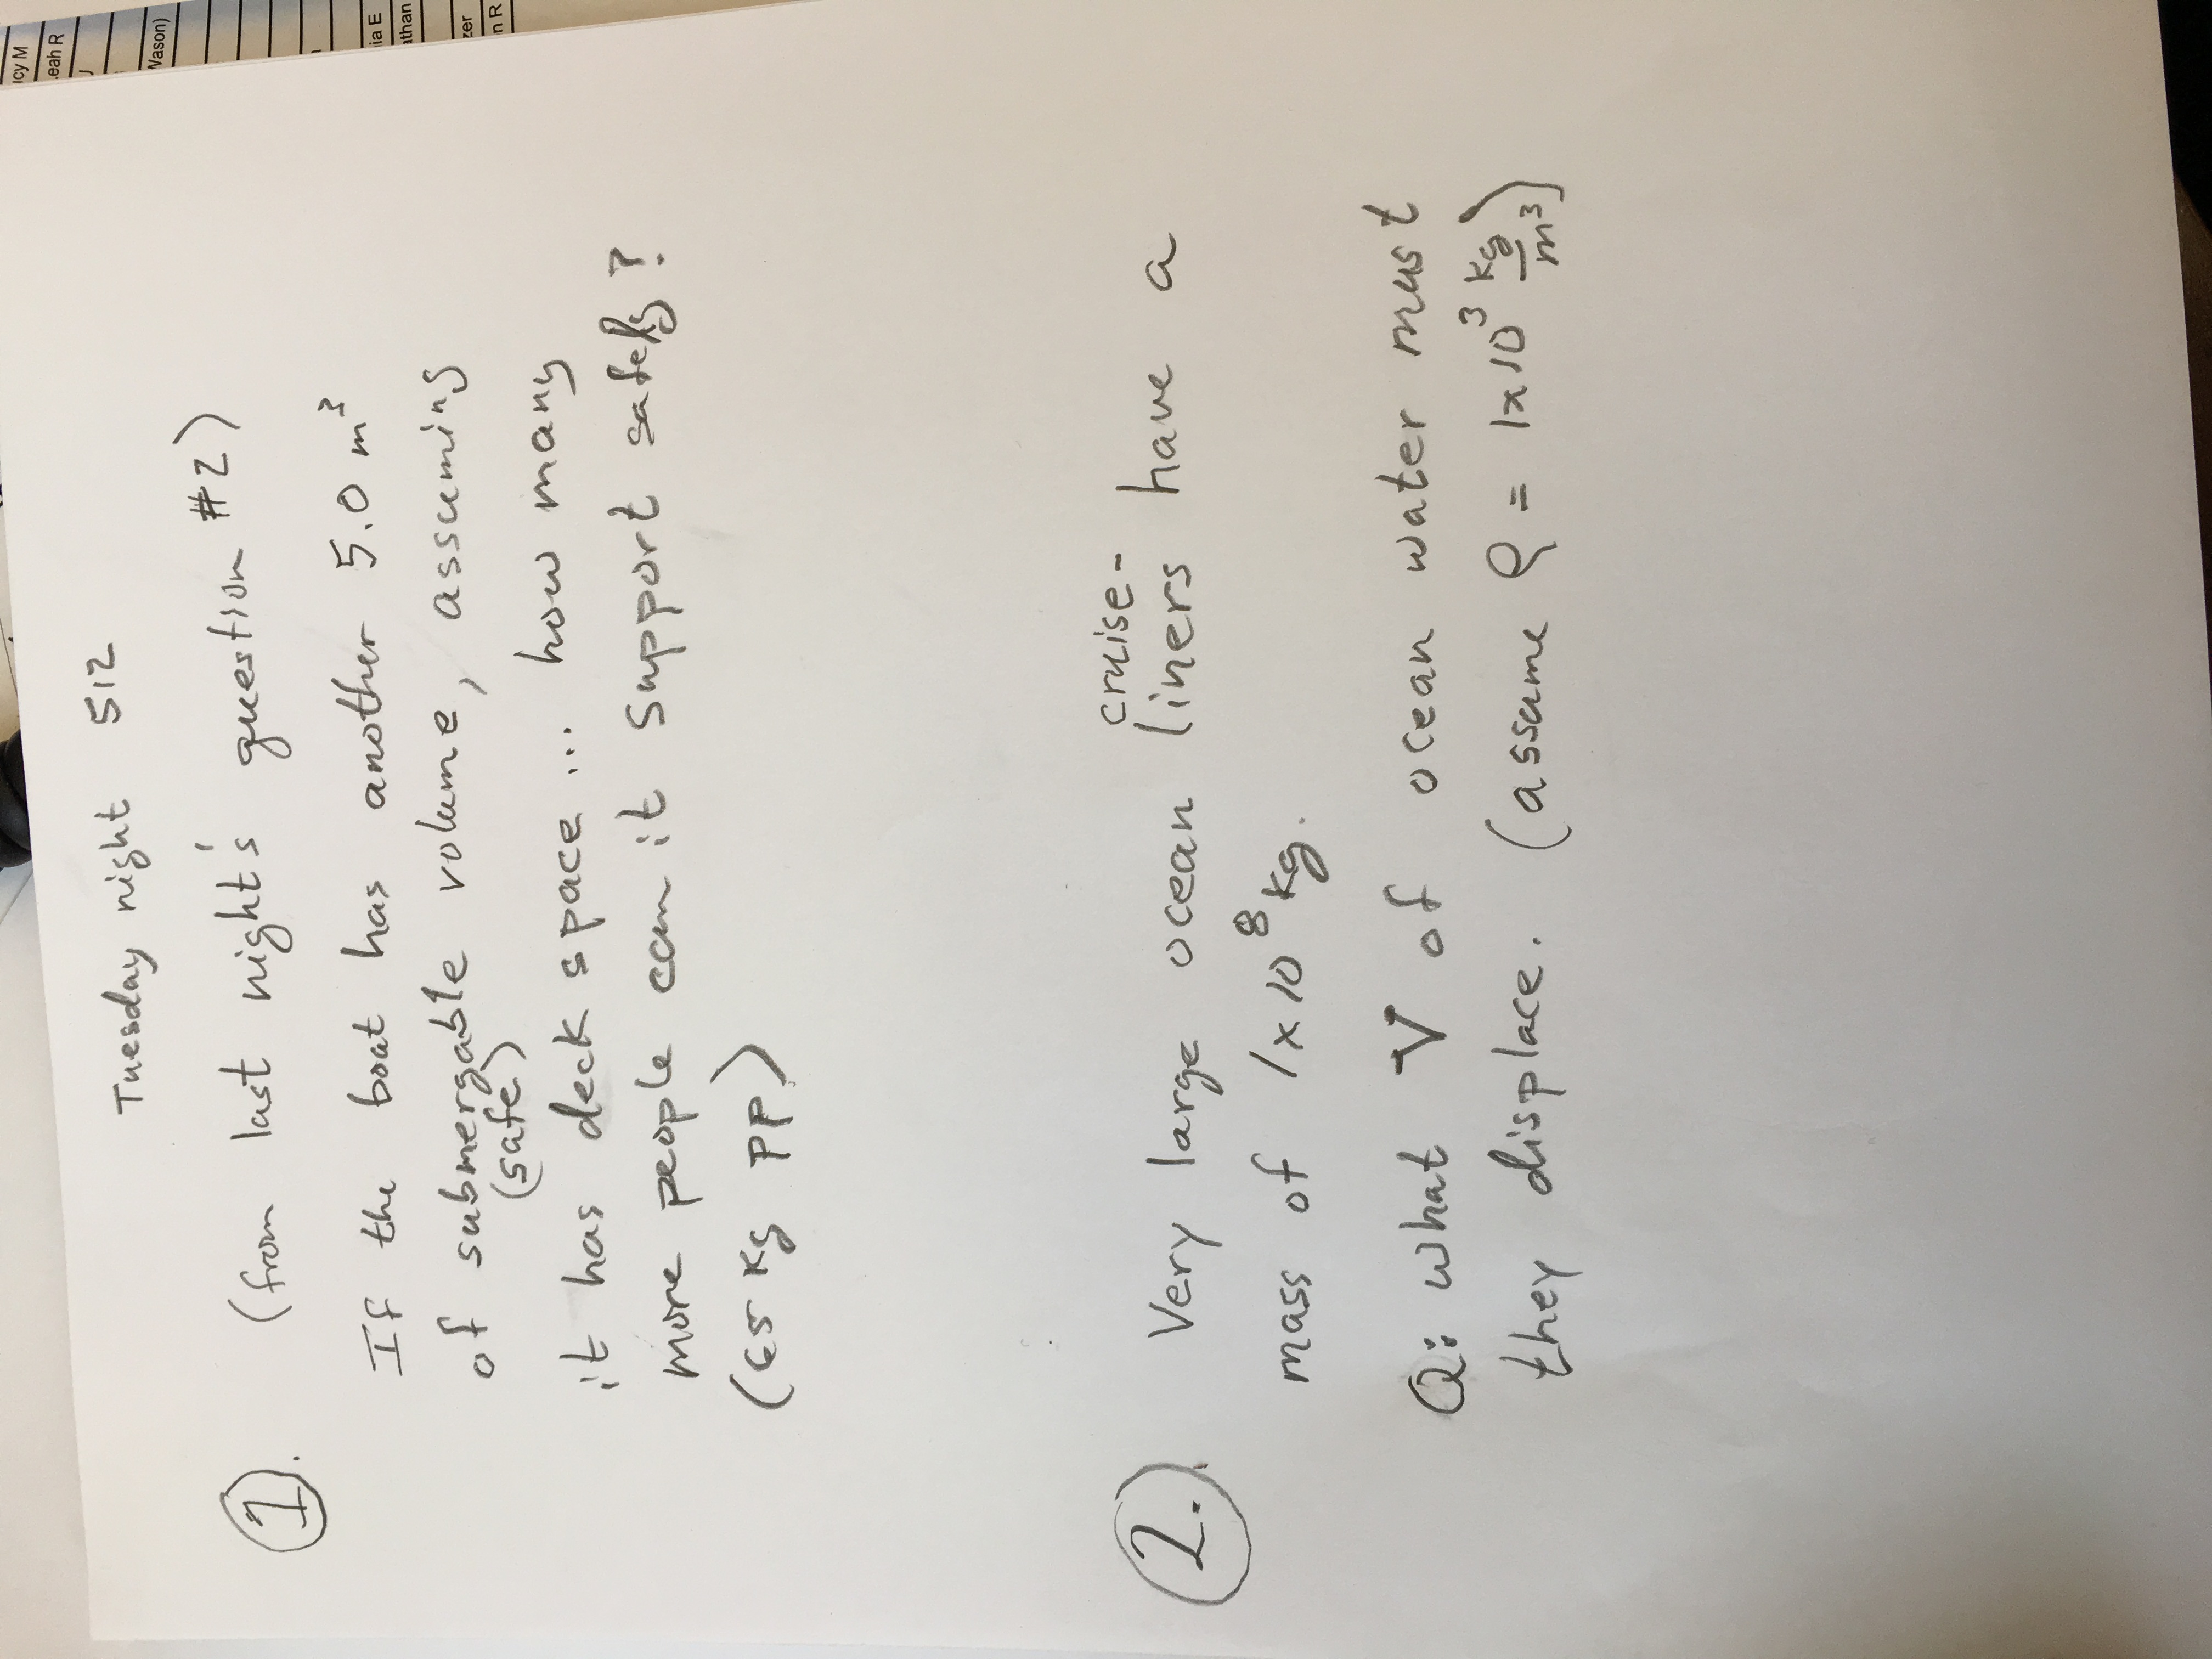 Tuesday night 512
1. (from last night's question #2)
If the boat has another 5.0 m³
of submergable volume, assuming
(safe)
it has deck space... how many
more people can it support safely?
(65 kg pp)
2. Very large ocean liners have a
cruise-
mass of 1x10⁸ kg.
Q: what V of ocean water must
they displace. (assume ρ = 1x10³ kg/m³)
icy M
eah R
Wason)
ia E
than
zer
n R